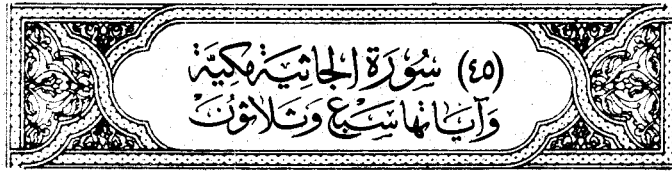 (٤٥) سُورَة الجَاثِيَة مَكِيَّة
وَآيَاتهَا سَبْع وَثَلَاثُونَ